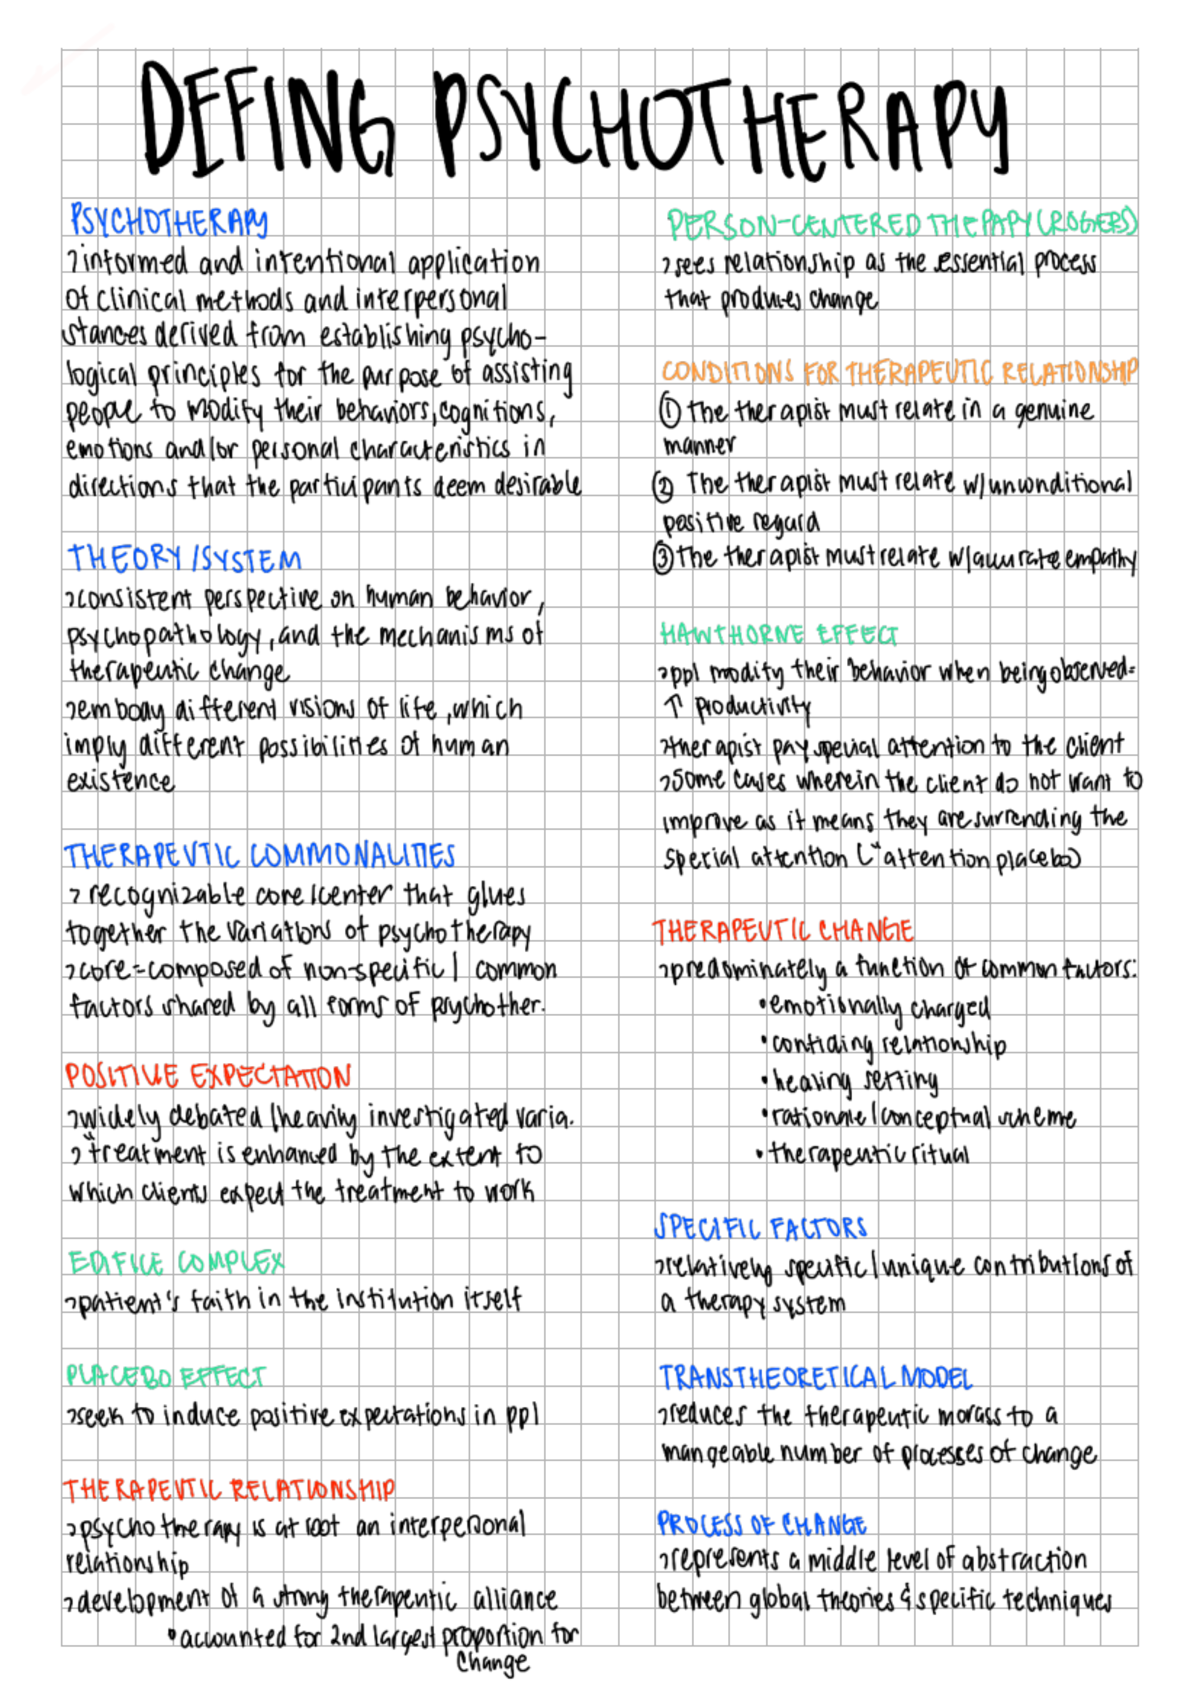 DEFING PSYCHOTHERAPY
PSYCHOTHERAPY
informed and intentional application
of clinical methods and interpersonal
stances derived from establishing psycho-
logical principles for the purpose of assisting
people to modify their behaviors, cognitions,
emotions and/or personal characteristics in
directions that the participants deem desirable
THEORY/SYSTEM
consistent perspective on human behavior,
psychopathology, and the mechanisms of
therapeutic change
embody different visions of life, which
imply different possibilities of human
existence
THERAPEUTIC COMMONALITIES
recognizable core/center that glues
together the variations of psychotherapy
core=composed of non-specific/common
factors shared by all forms of psychother.
POSITIVE EXPECTATION
widely debated/heavily investigated varia.
"treatment is enhanced by the extent to
which clients expect the treatment to work
EDIFICE COMPLEX
patient's faith in the institution itself
PLACEBO EFFECT
seek to induce positive expectations in ppl
THERAPEUTIC RELATIONSHIP
psychotherapy is at root an interpersonal
relationship
development of a strong therapeutic alliance
•accounted for 2nd largest proportion for
change
PERSON-CENTERED THEPAPY (ROGERS)
sees relationship as the essential process
that produces change
CONDITIONS FOR THERAPEUTIC RELATIONSHIP
① The therapist must relate in a genuine
manner
② The therapist must relate w/unconditional
positive regard
③ The therapist must relate w/accurate empathy
HAWTHORNE EFFECT
ppl modify their behavior when being observed=
↑ productivity
therapist pay special attention to the client
some cases wherein the client do not want to
improve as it means they are surrending the
special attention ("attention placebo)
THERAPEUTIC CHANGE
predominately a function of common factors:
•emotionally charged
•confiding relationship
•healing setting
•rationale/conceptual scheme
•therapeutic ritual
SPECIFIC FACTORS
relatively specific/unique contributions of
a therapy system
TRANSTHEORETICAL MODEL
reduces the therapeutic morass to a
mangeable number of processes of change
PROCESS OF CHANGE
represents a middle level of abstraction
between global theories & specific techniques